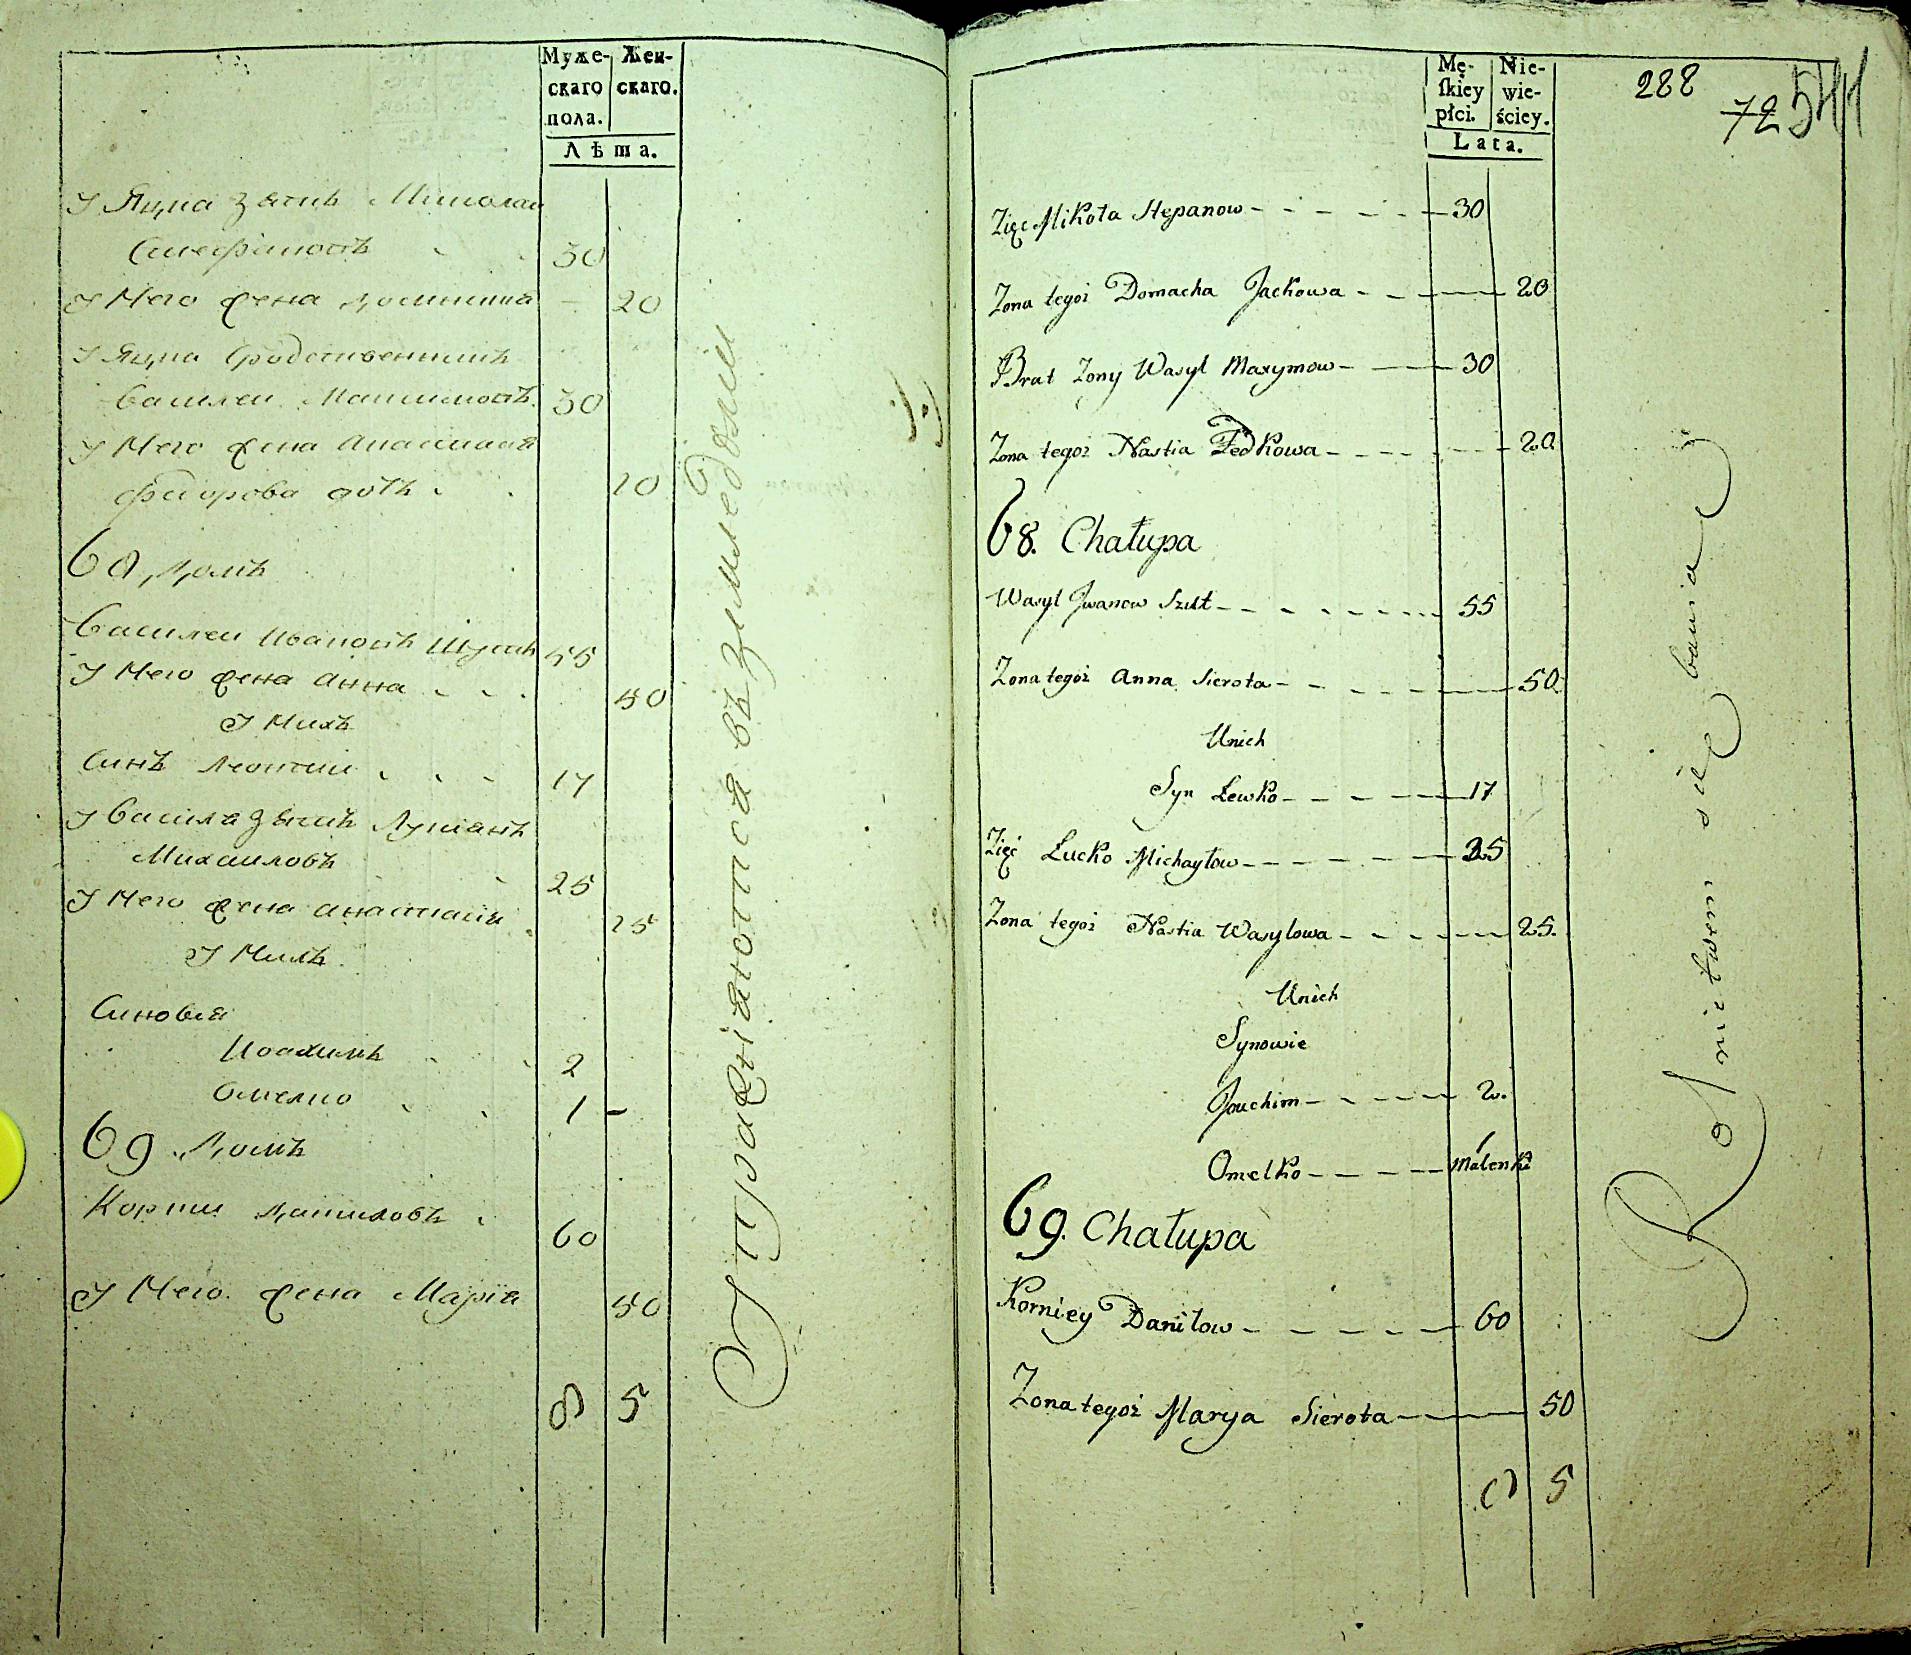 Муже- Жен-
скаго скаго.
пола.
Лѣта.
У Яцка зять Миколай
Стефановъ 30
У Него жена Домникия 20
У Яцка Сродственникъ
Василей Максимовъ 30
У Него жена Анастасия
Федорова дочь 20
68, Домъ
Василей Ивановъ Шустъ 55
У Него жена Анна 50
У Нихъ
Синъ Леонтий 17
У Василя зять Лукианъ
Михаиловъ 25
У Него жена Анастасия 25
У Нихъ
Синовья
Иоахимъ 2
Омелко 1 -
69 Домъ
Корнии Даниловъ 60
У Него жена Мария 50
8 5
Упражняются въ земледелии
Mę- Nie-
skiey wie-
płci. ściey.
Lata.
288
72 541
Zięc Mikoła Stepanow 30
Zona tegoż Domacha Jackowa 20
Brat Zony Wasyl Maxymow 30
Zona tegoż Nastia Fedkowa 20
68. Chałupa
Wasyl Jwanow Szust 55
Zona tegoż Anna Sierota 50
Unich
Syn Lewko 17
Zięć Łucko Michayłow 25
Zona tegoż Nastia Wasylowa 25.
Unich
Synowie
Joachim 2.
Omelko malenki
69. Chałupa
Korniey Daniłow 60
Zona tegoż Marya Sierota 50
8 5
Rolnictwem się bawią